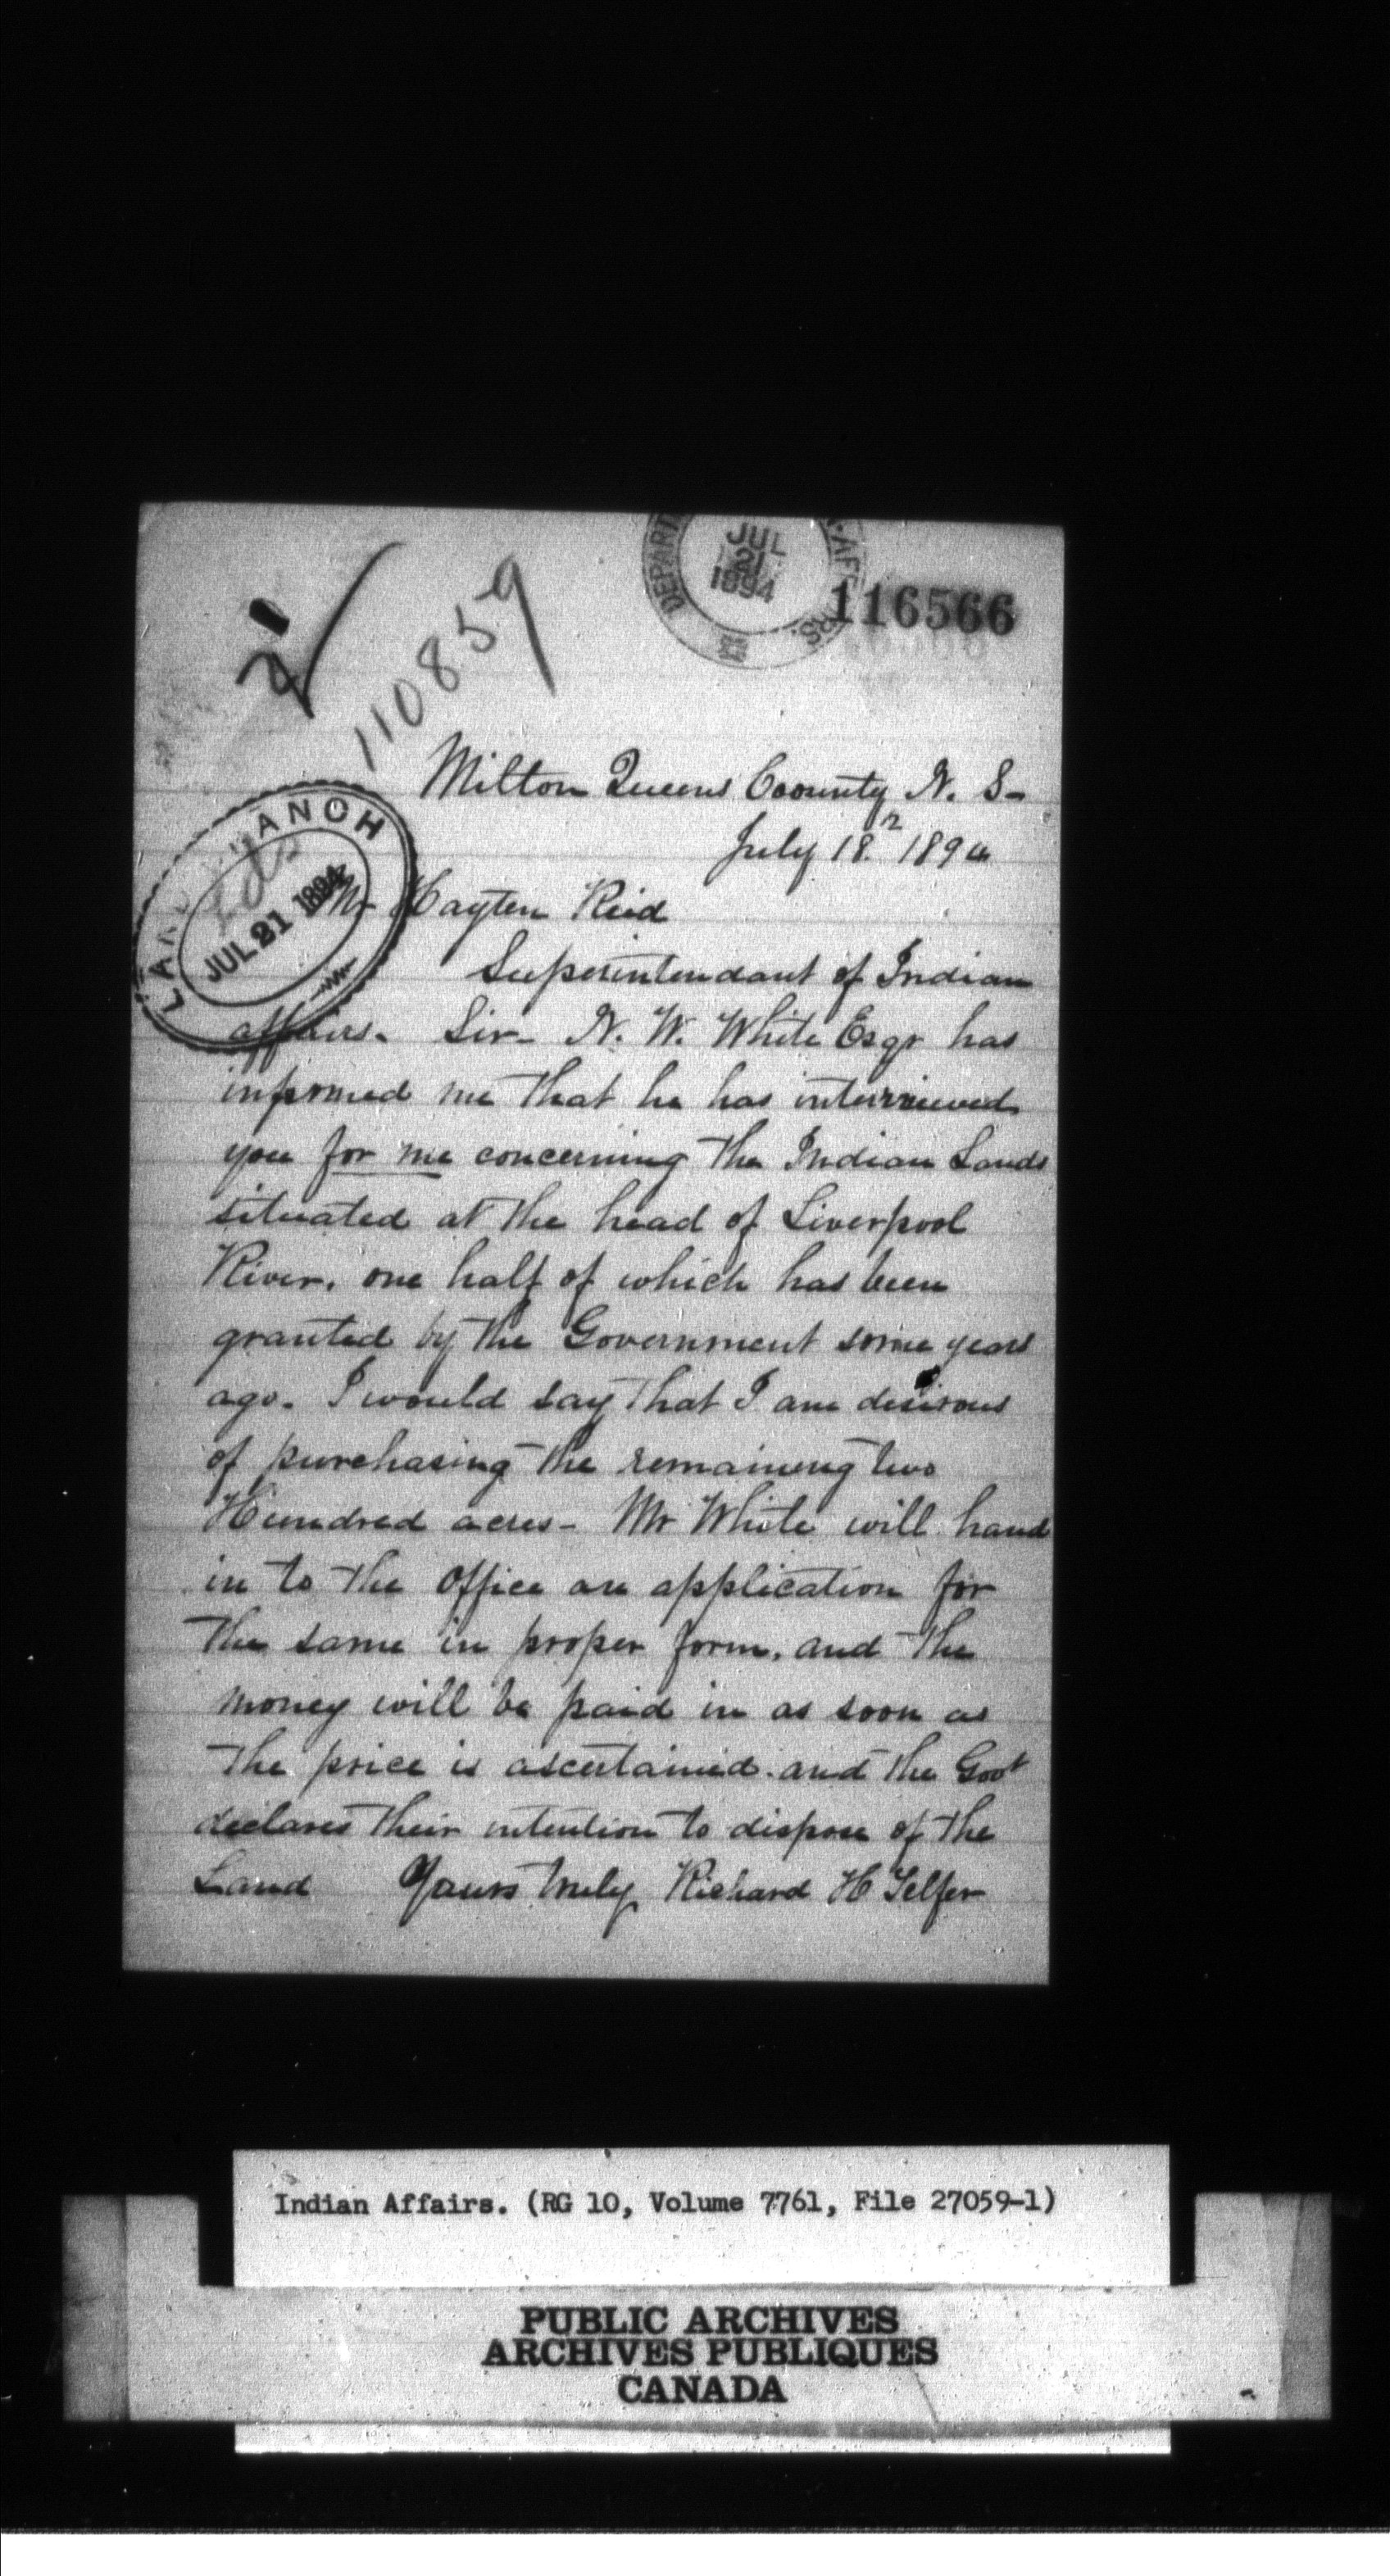 JUL
21
1894
116566
110859
Milton Queens Coounty N. S-
July 18. 1894
LAND BRANCH
JUL 21 1894
Mr Hayten Reid
Superintendant of Indian
affairs. Sir- N. W. White Esqr has
informed me that he has interviewed
you for me concerning the Indian Lands
situated at the head of Liverpool
River. one half of which has been
granted by the Government some years
ago. I would say that I am desirous
of purchasing the remaining two
Hundred acres- Mr White will hand
in to the Office an application for
the same in proper form. and the
money will be paid in as soon as
the price is ascertained. and the Govt
declares their intention to dispose of the
Land Yours truly Richard H Telfer
Indian Affairs. (RG 10, Volume 7761, File 27059-1)
PUBLIC ARCHIVES
ARCHIVES PUBLIQUES
CANADA